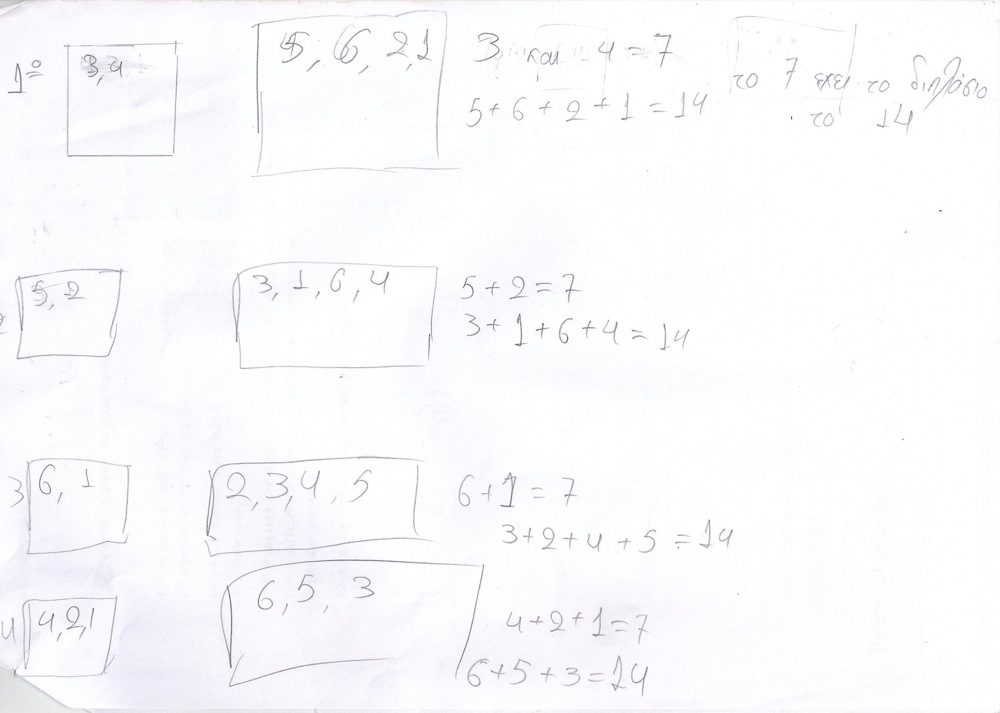 1º 3,4 5, 6, 2,1 3 και 4 = 7 το 7 εχει το διπλάσιο
5 + 6 + 2 + 1 = 14 το 14
5, 2 3, 1, 6, 4 5 + 2 = 7
3 + 1 + 6 + 4 = 14
3 6, 1 2, 3, 4, 5 6 + 1 = 7
3 + 2 + 4 + 5 = 14
4 4,2,1 6, 5, 3 4 + 2 + 1 = 7
6 + 5 + 3 = 14